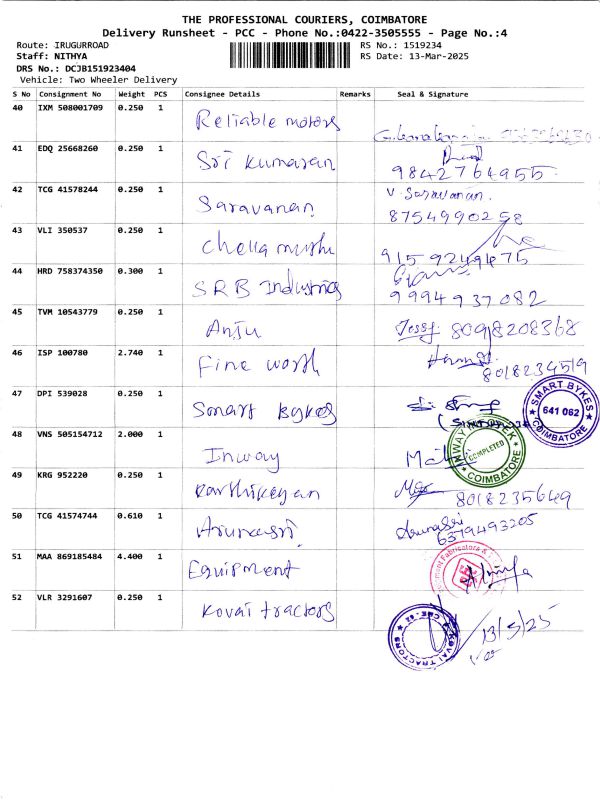 THE PROFESSIONAL COURIERS, COIMBATORE
Delivery Runsheet - PCC - Phone No.:0422-3505555 - Page No.:4
Route: IRUGURROAD
RS No.: 1519234
Staff: NITHYA
RS Date: 13-Mar-2025
DRS No.: DCJB151923404
Vehicle: Two Wheeler Delivery
S No Consignment No Weight PCS Consignee Details Remarks Seal & Signature
40 IXM 508001709 0.250 1 Reliable motors
41 EDQ 25668260 0.250 1 Sri kumaran 9842764955
42 TCG 41578244 0.250 1 Saravanan V. Saravanan.
8754990258
43 VLI 350537 0.250 1 Chella muthu 9159249475
44 HRD 758374350 0.300 1 SRB Industries 9994937082
45 TVM 10543779 0.250 1 Anju Jessy 8098208368
46 ISP 100780 2.740 1 Fine worth 8018234519
47 DPI 539028 0.250 1 Smart Bykes
SMART BYKES
641 062
COIMBATORE
48 VNS 505154712 2.000 1 Inway
COMPLETED
COIMBATORE
49 KRG 952220 0.250 1 Karthikeyan 80182235649
50 TCG 41574744 0.610 1 Arunasri Arunasri
6379493205
51 MAA 869185484 4.400 1 Equipment
Fabricators &
52 VLR 3291607 0.250 1 Kovai tractors 13/5/25
KOVAI TRACTORS
CBE-62